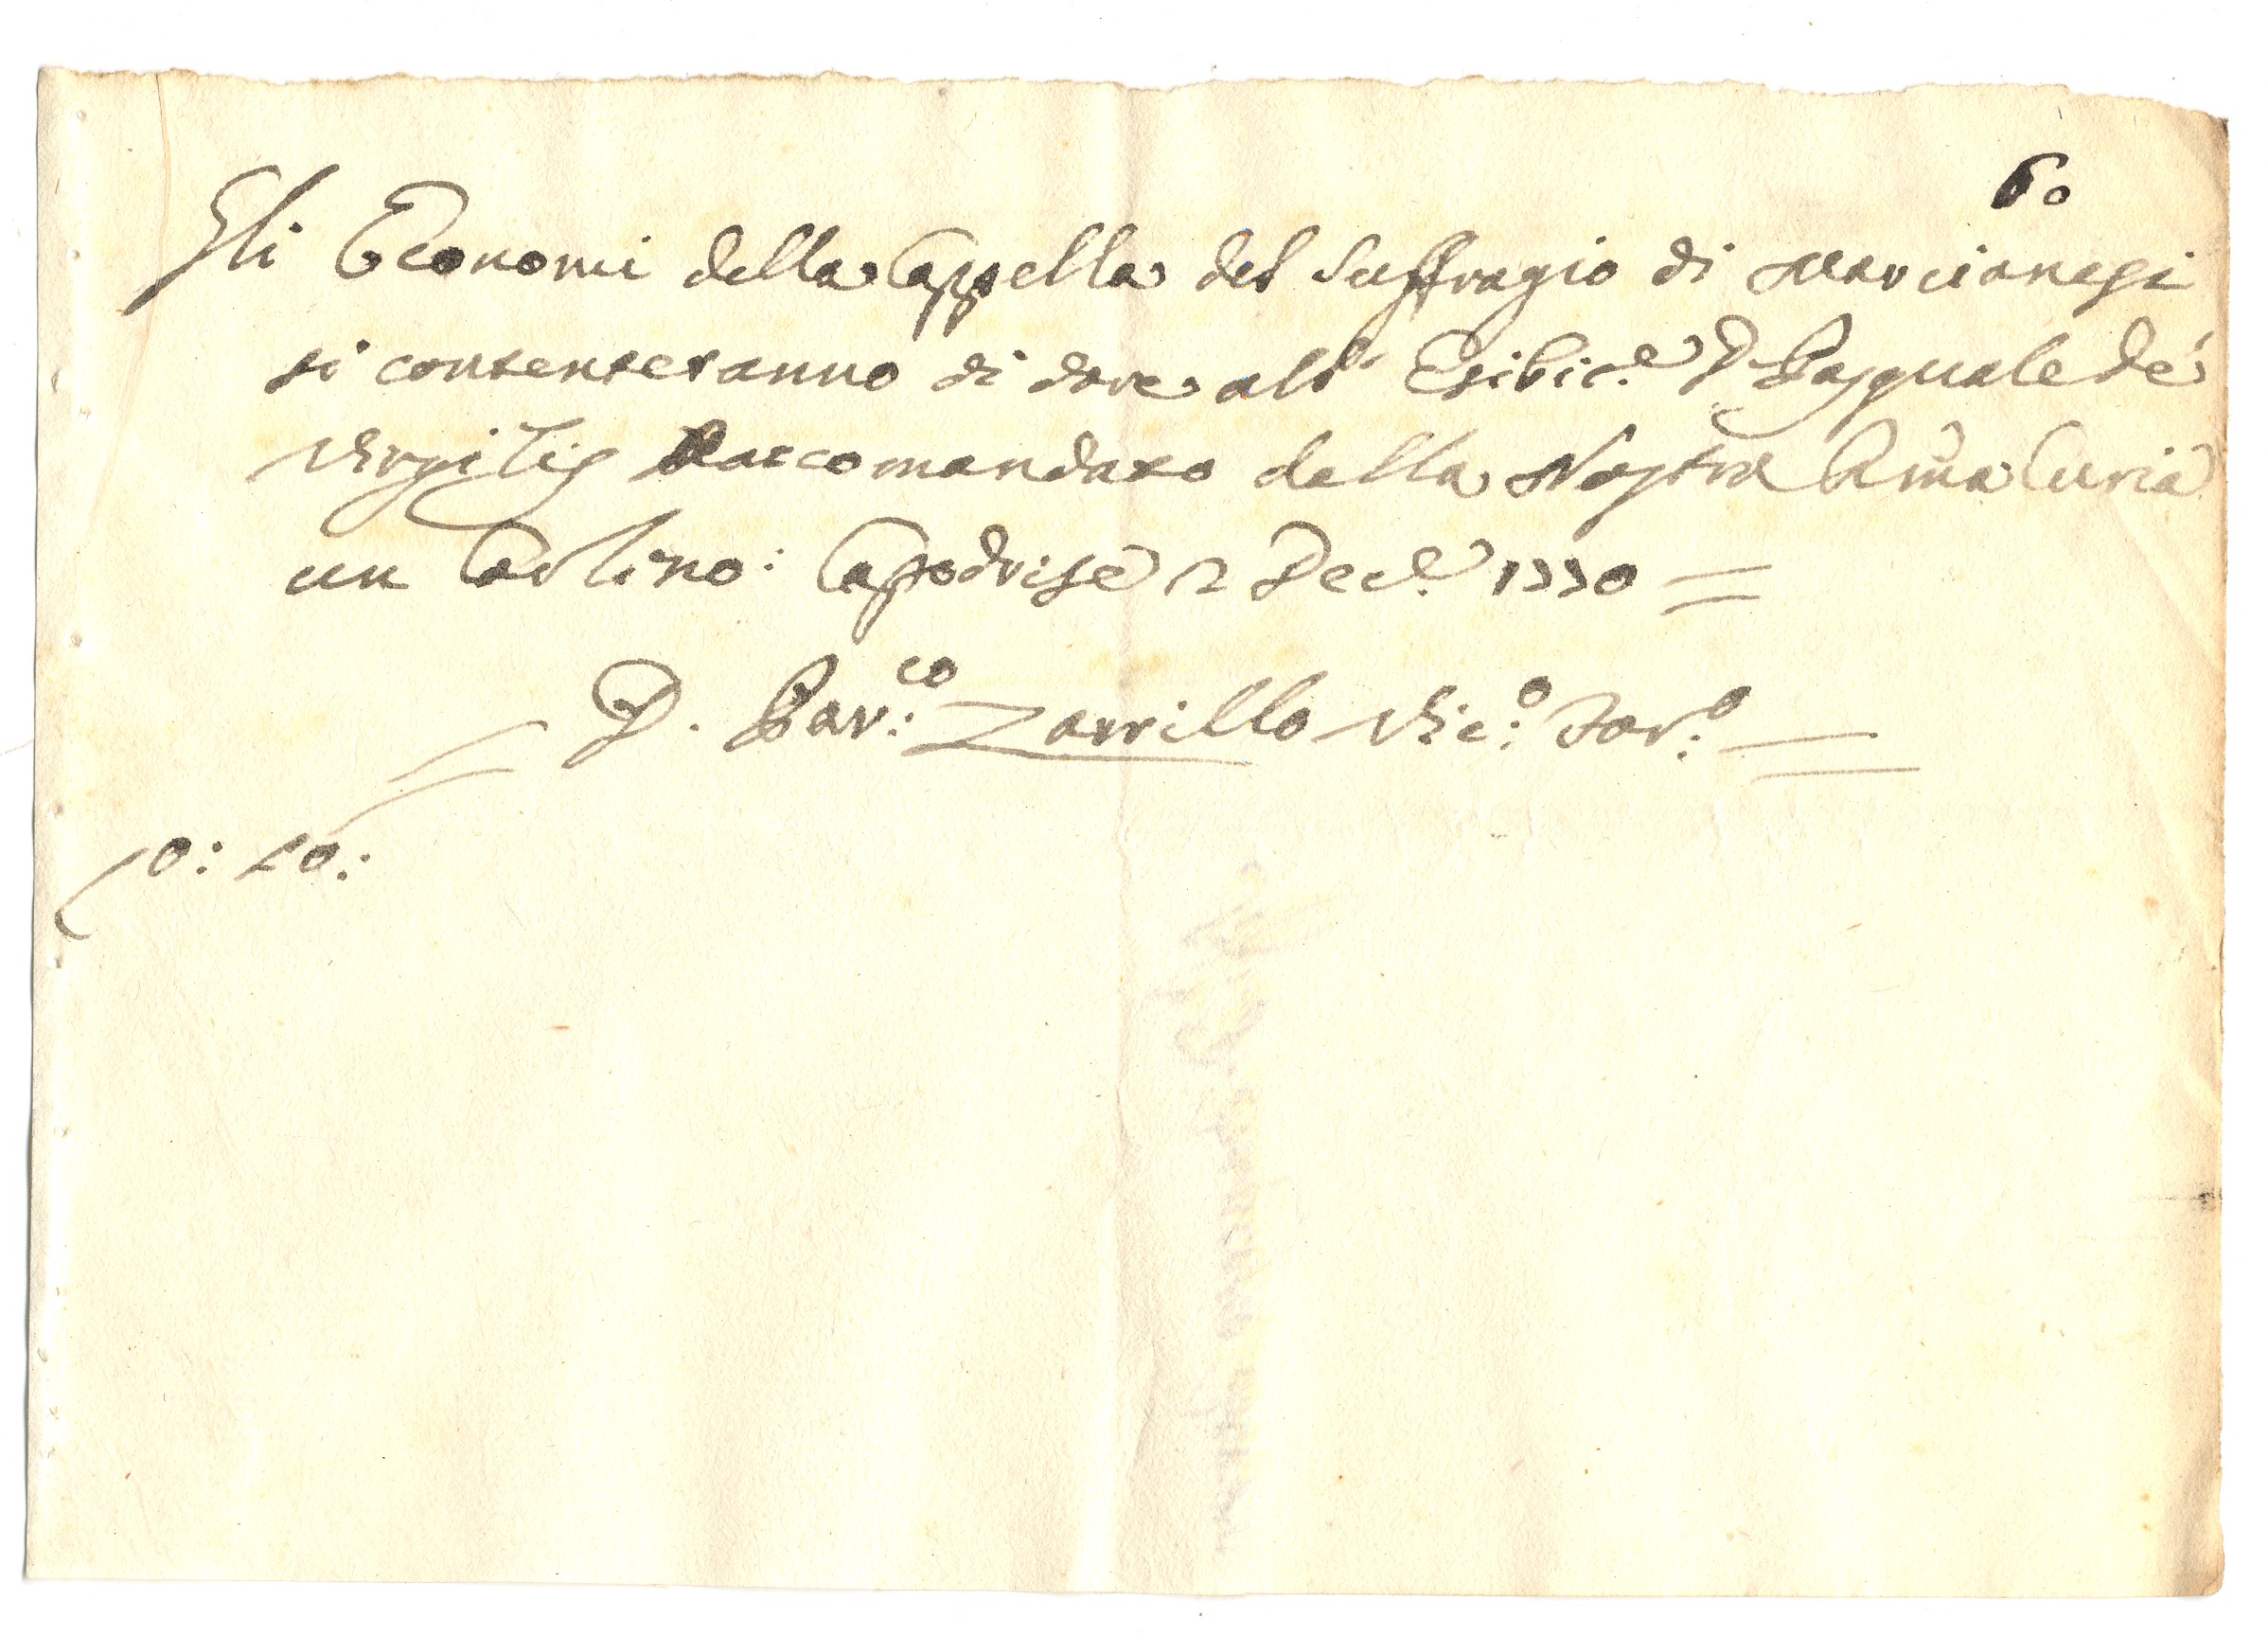 60
Gli Economi della Cappella del Suffragio di Marcianesi
si contenteranno di dare all' Esibic.e D. Pasquale de'
Virgiliis Raccomandato della Nostra Rma Curia
un Carlino: Capodrise 2 Dec.e 1770 =
= D. Par.co Zarrillo Vic.o For.o =
0: 10: